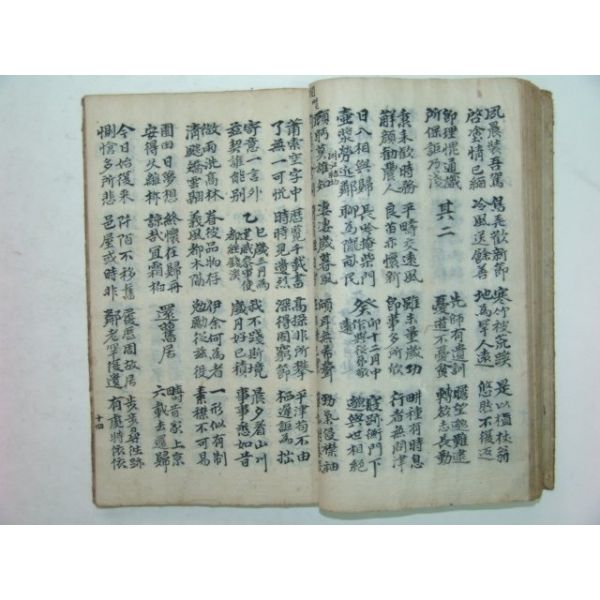 夙晨裝吾駕 鳥弄歡新節 寒竹被荒蹊 是以植杖翁
啓塗情已緬 冷風送餘善 地爲罕人遠 悠然不復返
即理愧通識 其二 先師有遺訓 瞻望邈難逮
所保詎乃淺 憂道不憂貧 轉欲志長勤
秉耒歡時務 平疇交遠風 雖未量歲功 耕種有時息
解顏勸農人 良苗亦懷新 即事多所欣 行者無問津
日入相與歸 長吟掩柴門 癸卯十二月中作與從弟敬遠 寢跡衡門下
壺漿勞近鄰 聊爲隴畝民 邈與世相絕
顧眄莫誰知 凄凄歲暮風 傾耳無希聲 勁氣侵襟袖
蕭索空宇中 歷覽千載書 高操非所攀 平津苟不由
了無一可悅 時時見遺烈 深得固窮節 栖遲詎爲拙
寄意一言外 乙巳歲三月爲建威參軍使都經錢溪 我不踐斯境 晨夕看山川
茲契誰能別 歲月好已積 事事悉如昔
微雨洗高林 眷彼品物存 伊余何爲者 一形似有制
清飇矯雲翮 義風都未隔 勉勵從茲役 素襟不可易
園田日夢想 終懷在歸舟 還舊居 疇昔家上京
安得久離析 諒哉宜霜柏 六載去還歸
今日始復來 阡陌不移舊 履歷周故居 步步尋往跡
惻愴多所悲 邑屋或時非 鄰老罕復遺 有處時依依
十四